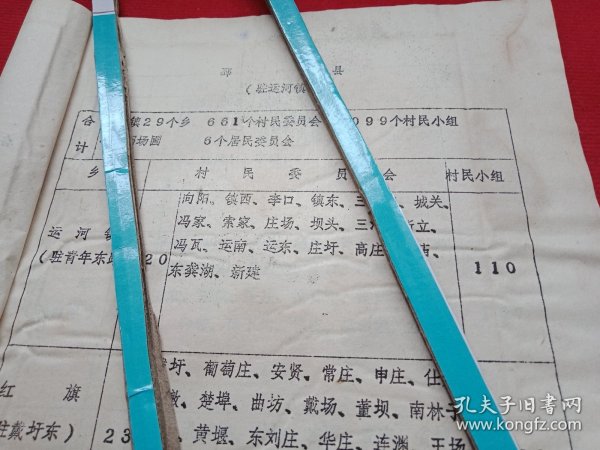 县
(驻运河镇
合 镇29个乡 661个村民委员会 099个村民小组
计 场圃 6个居民委员会
乡 村民委员会 村民小组
向阳、镇西、李口、镇东、三 城关、
冯家、索家、庄场、坝头、三 立、
运河 冯瓦、运南、运东、庄圩、高庄
(驻青年东 20 东龚湖、新建 110
圩、葡萄庄、安贤、常庄、申庄、仕
红旗 墩、楚埠、曲坊、戴场、董坝、南林子
驻戴圩东) 23 黄堰、东刘庄、华庄、连渊、王场
孔夫子旧书网
www.kongfz.com